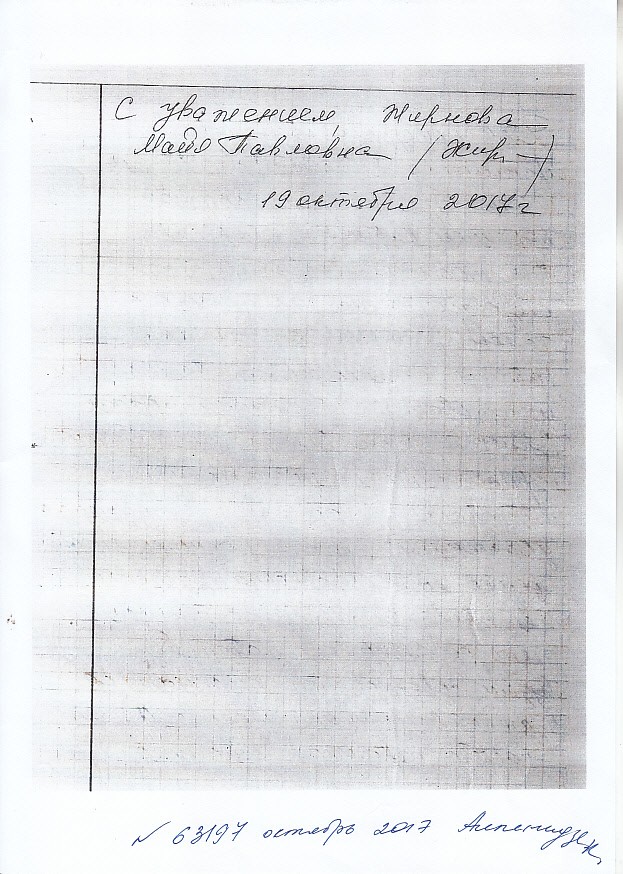 С уважением, Жирнова
Майя Павловна (Жир
19 октября 2017 г
№ 63197 октябрь 2017